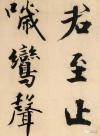 君至止
噦鸞聲